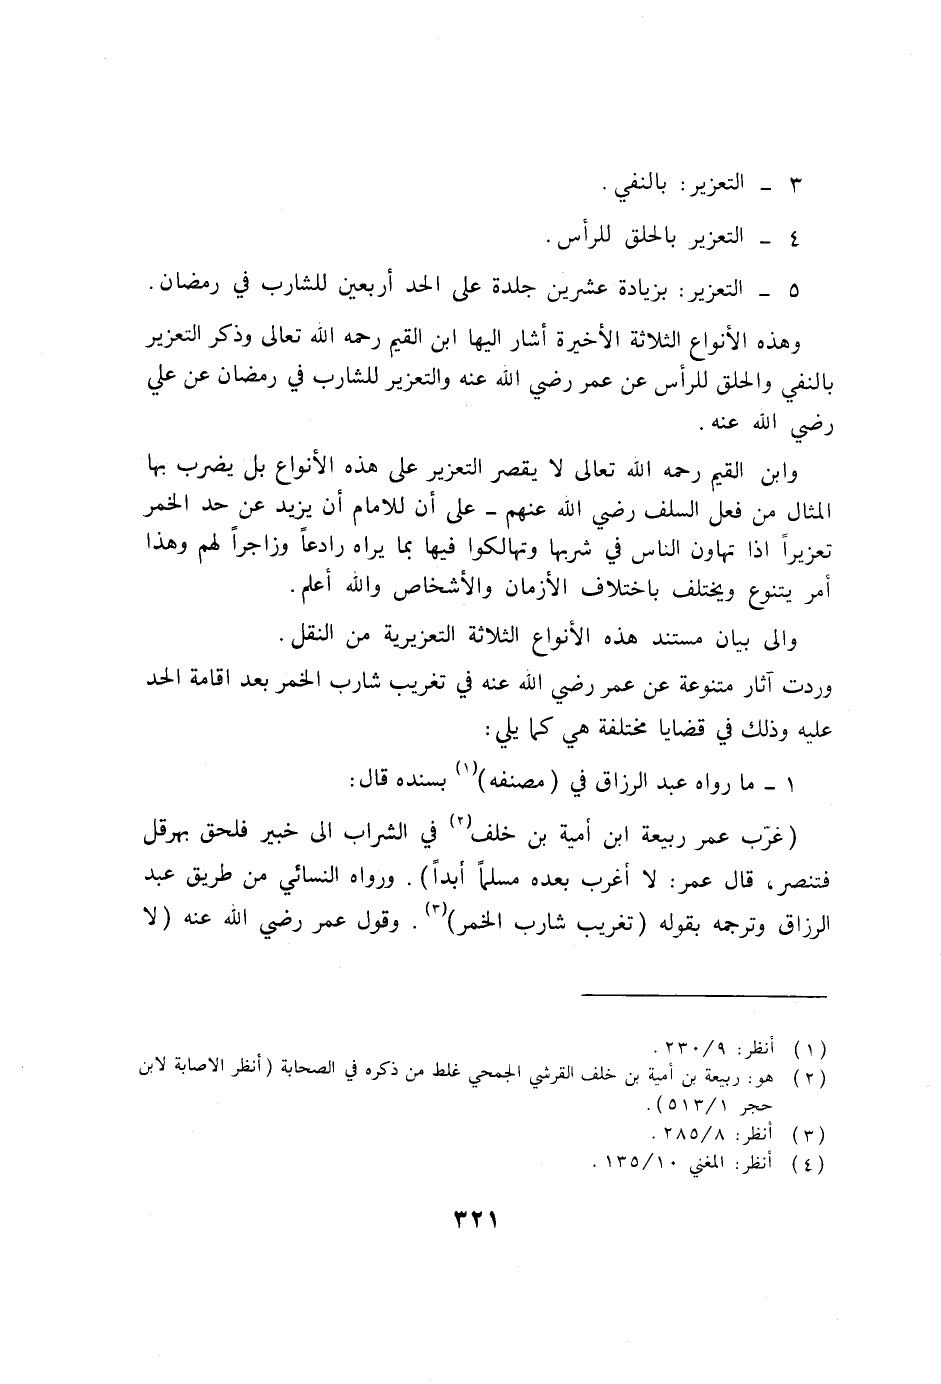 ٣ ـ التعزير : بالنفي .
٤ ـ التعزير بالحلق للرأس .
٥ ـ التعزير : بزيادة عشرين جلدة على الحد أربعين للشارب في رمضان .
وهذه الأنواع الثلاثة الأخيرة أشار اليها ابن القيم رحمه الله تعالى وذكر التعزير
بالنفي والحلق للرأس عن عمر رضي الله عنه والتعزير للشارب في رمضان عن علي
رضي الله عنه .
وابن القيم رحمه الله تعالى لا يقصر التعزير على هذه الأنواع بل يضرب بها
المثال من فعل السلف رضي الله عنهم ـ على أن للامام أن يزيد عن حد الخمر
تعزيراً اذا تهاون الناس في شربها وتهالكوا فيها بما يراه رادعاً وزاجراً لهم وهذا
أمر يتنوع ويختلف باختلاف الأزمان والأشخاص والله أعلم .
والى بيان مستند هذه الأنواع الثلاثة التعزيرية من النقل .
وردت آثار متنوعة عن عمر رضي الله عنه في تغريب شارب الخمر بعد اقامة الحد
عليه وذلك في قضايا مختلفة هي كما يلي :
١ ـ ما رواه عبد الرزاق في ( مصنفه )(١) بسنده قال :
( غرّب عمر ربيعة ابن أمية بن خلف(٢) في الشراب الى خبير فلحق بهرقل
فتنصر ، قال عمر : لا أغرب بعده مسلماً أبداً ) . ورواه النسائي من طريق عبد
الرزاق وترجمه بقوله ( تغريب شارب الخمر )(٣) . وقول عمر رضي الله عنه ( لا
(١) أنظر : ٢٣٠/٩ .
(٢) هو : ربيعة بن أمية بن خلف القرشي الجمحي غلط من ذكره في الصحابة ( أنظر الاصابة لابن
حجر ٥١٣/١ ) .
(٣) أنظر : ٢٨٥/٨ .
(٤) أنظر : المغني ١٣٥/١٠ .
٣٢١